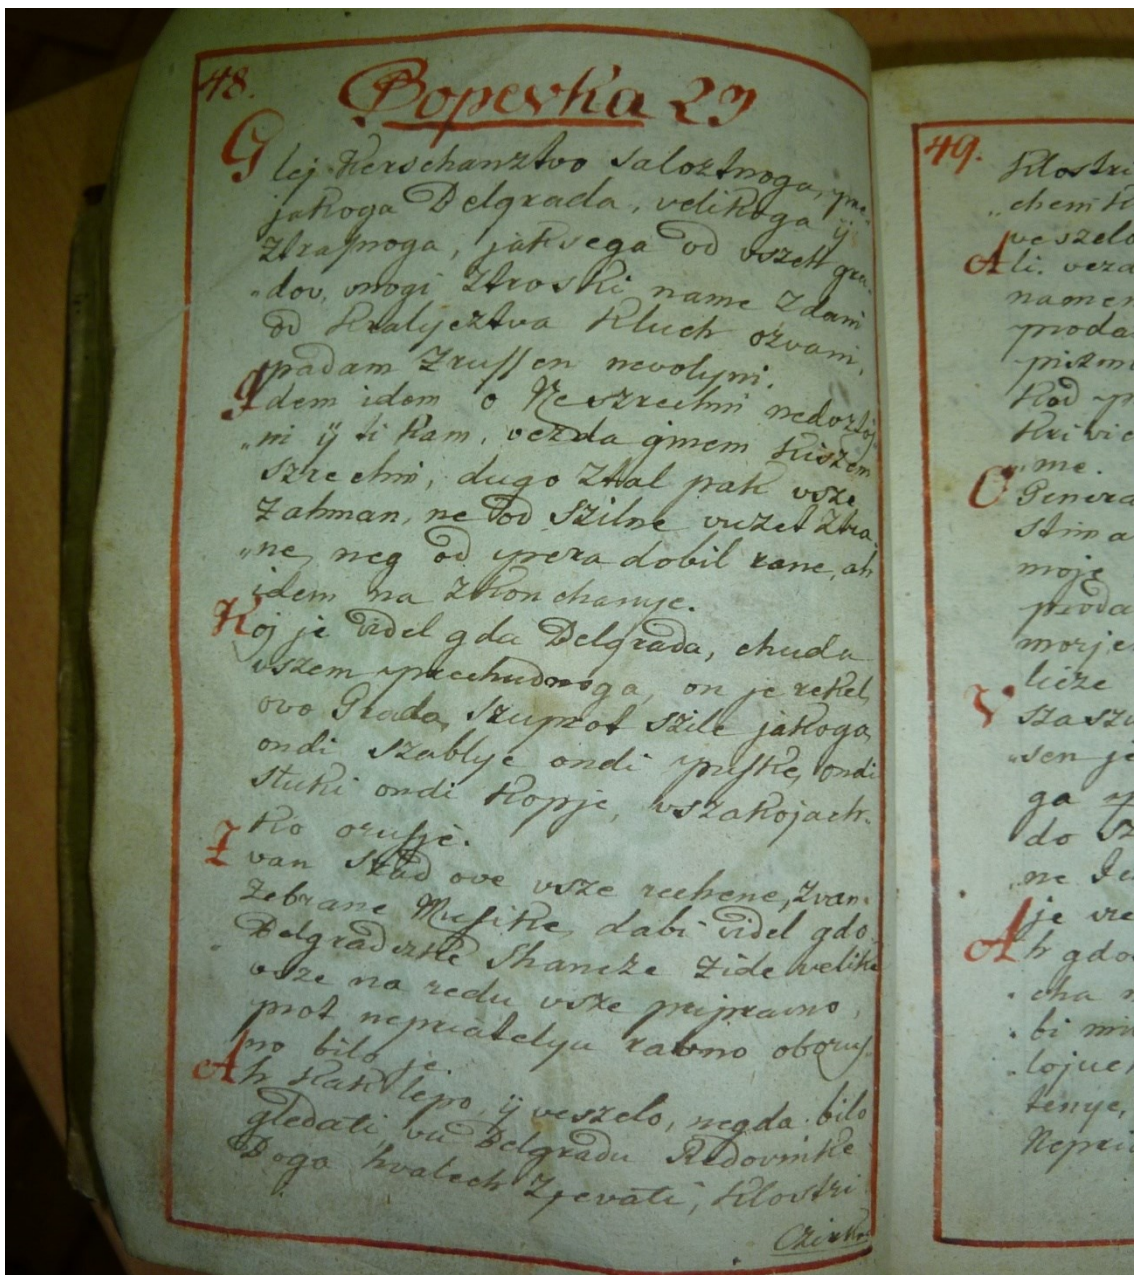 48. Popevka 29
Glej Kerschanztvo salosztnoga, pre-
jakoga Belgrada, velikoga ÿ
ztrasnoga, jaksega od vszeh gra-
„dov, mnogi ztroski name zdani
od Kralyeztva Kluch ozvani,
padam zrussen nevolyni.
Idem idem o Neszrechni nedoztoj
„ni ÿ ti kam, vezda ginem kiszem
szrechni, dugo ztal pak vsze
zahman, ne od szilne vuzet ztra
„ne, neg od pera dobil rane, ah
idem na zkonchanye.
Koj je videl gda Belgrada, chuda
vszem prechudnoga, on je rekel,
ovo Grada, szuprot szile jakoga,
ondi szablye ondi puske, ondi
stuki ondi kopje, vszakojach-
ko orusje.
Zvan szad ove vsze rechene, zvan-
zebrane Musike, dabi videl gdo
Belgradszke Shancze zide velike
vsze na redu vsze pripravno,
prot nepriatelyu ravno oborus-
no bilo je.
Ah kak lepo, ÿ veszelo, negda bilo
gledati, vu Belgradu Redovnike
Boga hvalech zpevati, Klostri
Czirkve
49. Klostri
„chem k
veszelo
Ali vezd
namen
proda
piszm
Kod p
krivic
„me.
O Genera
stima
moje
proda
morje
licze
V szasz
„sen je
ga p
do sz
„ne Iu
je vre
Ah gdo
cha n
bi mi
lojuch
tenye,
Nepri